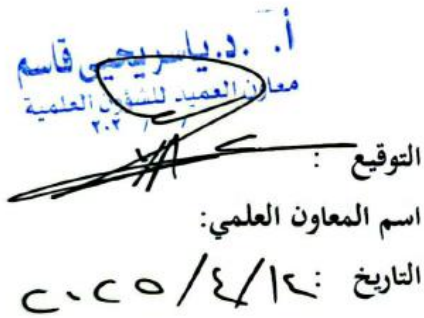 أ. .د. ياسر يحيى قاسم
معاون العميد للشؤون العلمية
/ / ٢٠٢
التوقيع :
اسم المعاون العلمي:
التاريخ : ١٢/٤/٢٠٢٥